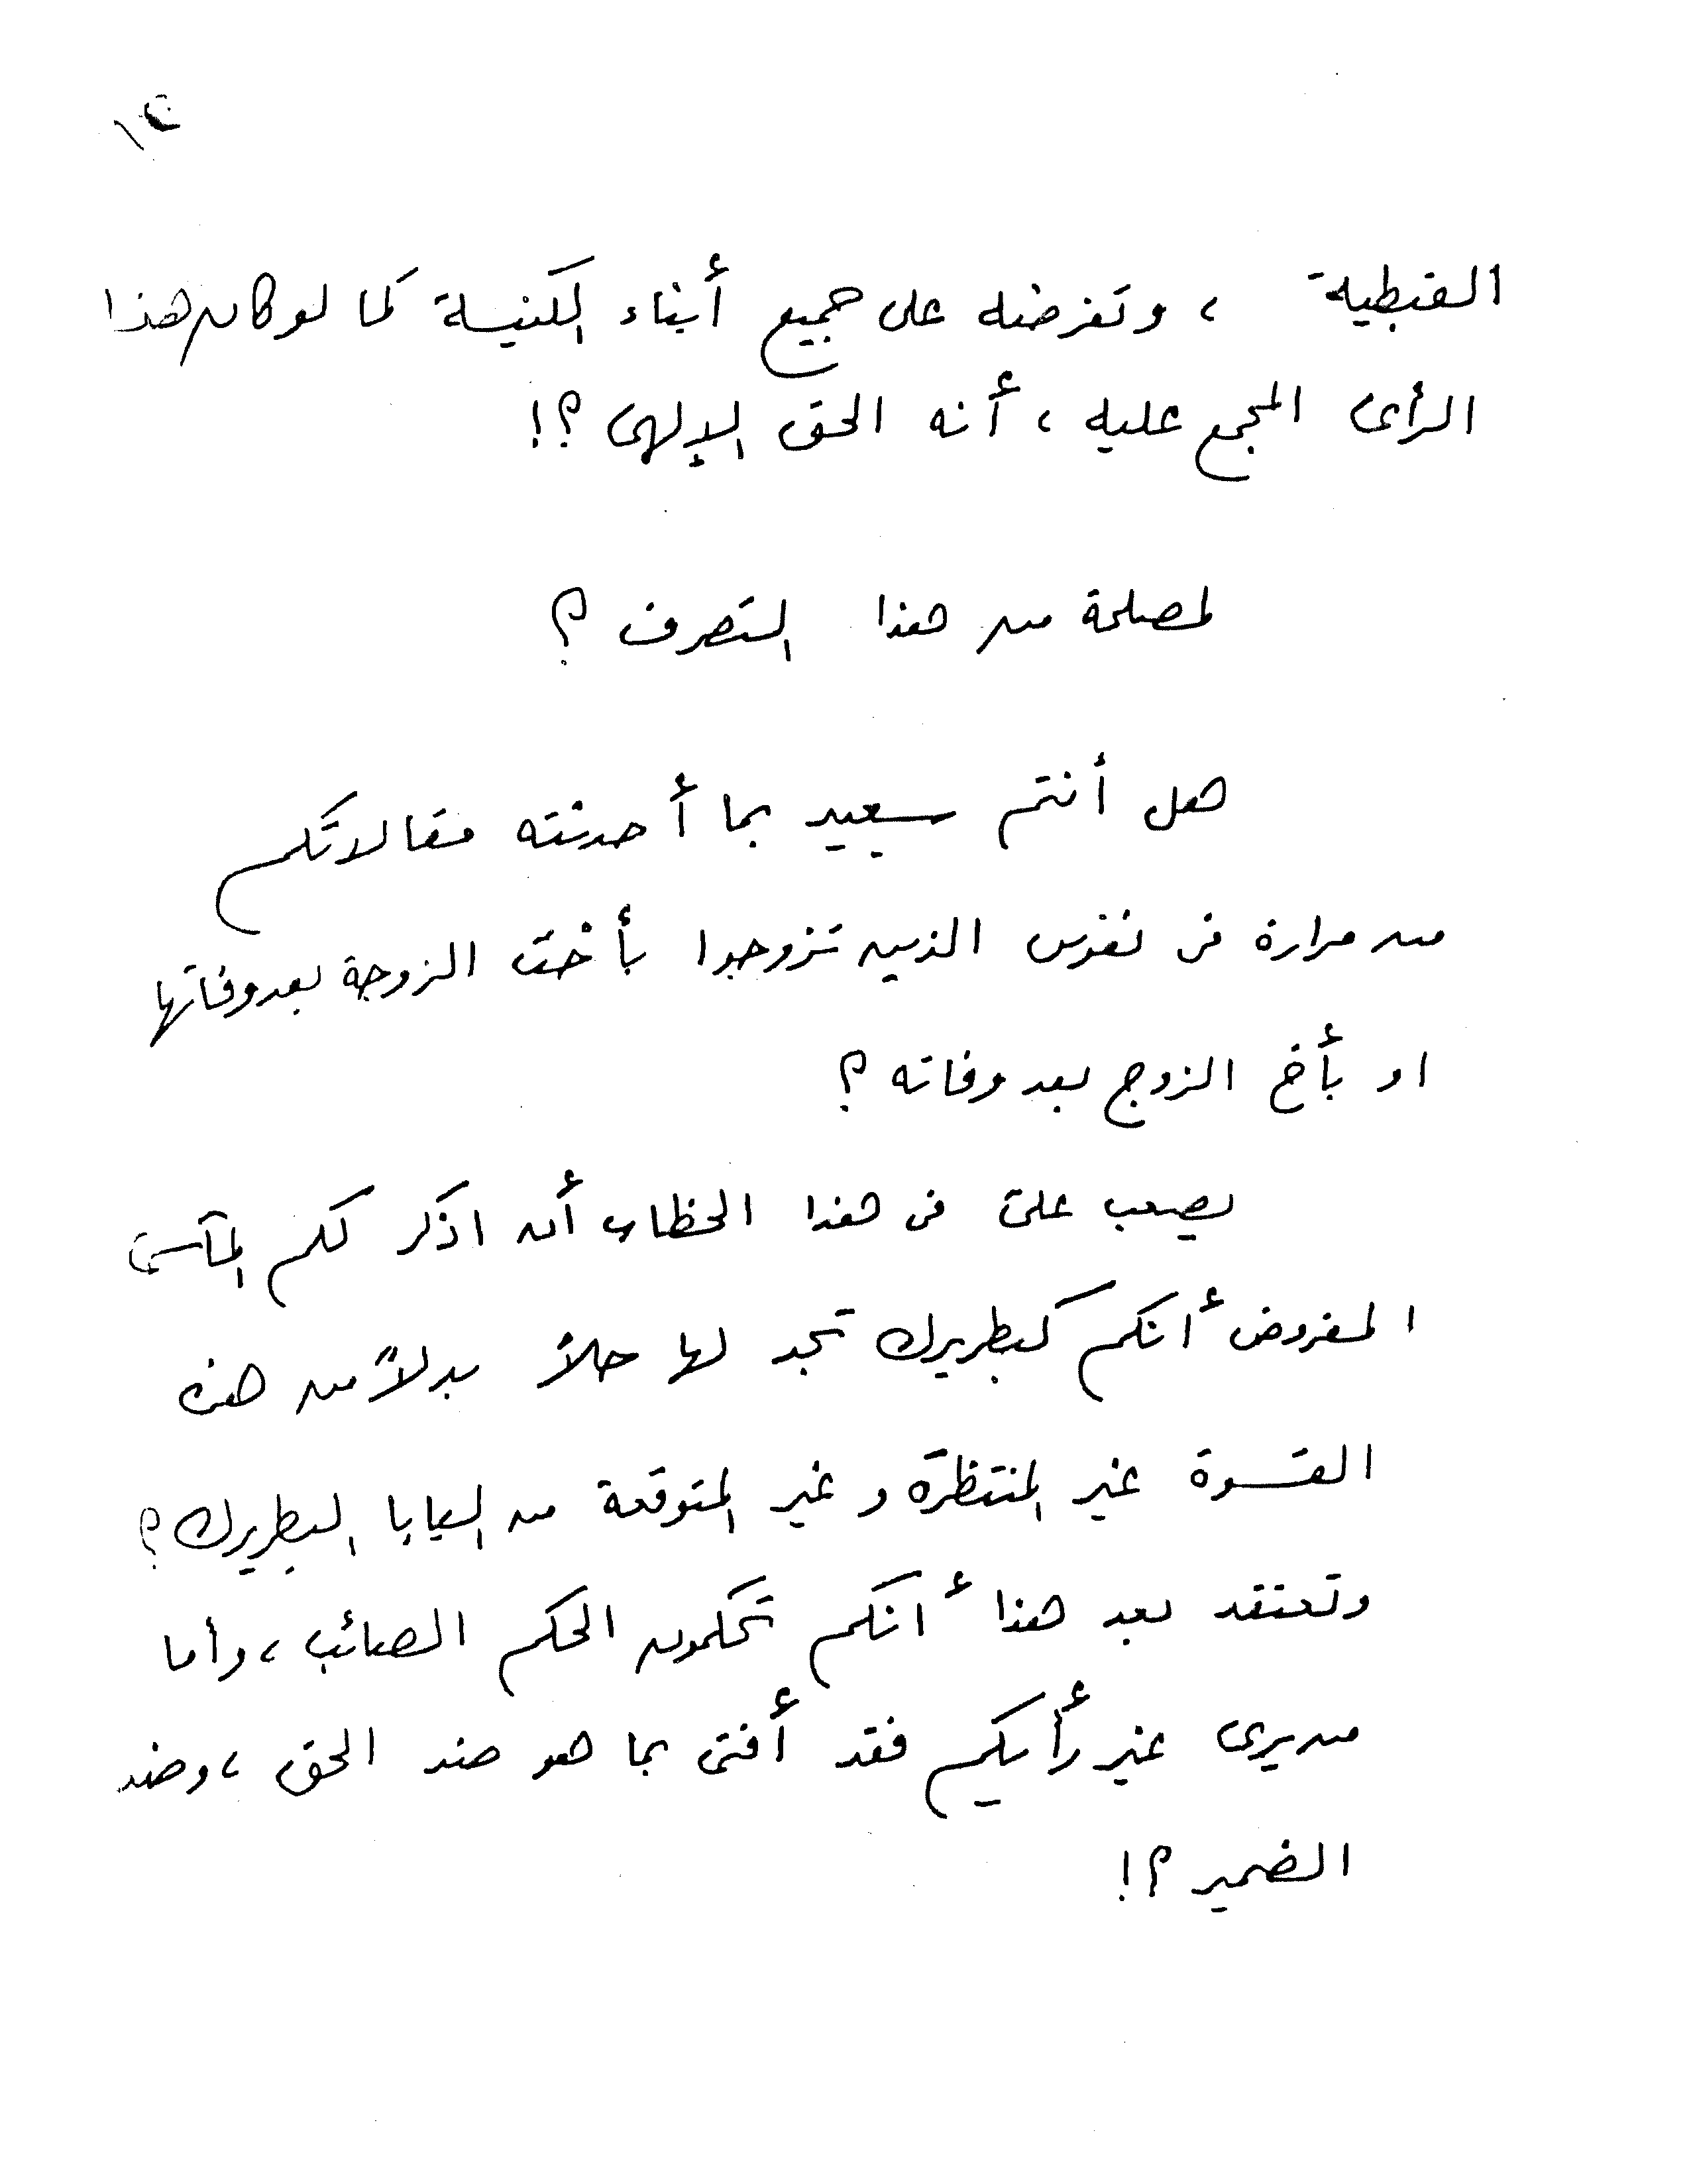 القبطية ، وتفرضه على جميع أبناء الكنيسة كما لو كان هذا
الرأى المجمع عليه ، أنه الحق الإلهى ؟!
لمصلحة من هذا التصرف ؟
هل أنتم سعيد بما أحدثته مقالاتكم
من مرارة فى نفوس الذين تزوجوا بأخت الزوجة بعد وفاتها
او بأخ الزوج بعد وفاته ؟
يصعب علىّ فى هذا الخطاب أن اذكر لكم المآسى
المفروض أنكم كبطريرك تجد لها حلاً بدلاً من هذه
القسوة غير المنتظرة و غير المتوقعة من البابا البطريرك ؟
وتعتقد بعد هذا أنكم تحكمون الحكم الصائب ، وأما
من يرى غير رأيكم فقد أفتى بما هو ضد الحق ، وضد
الضمير ؟!